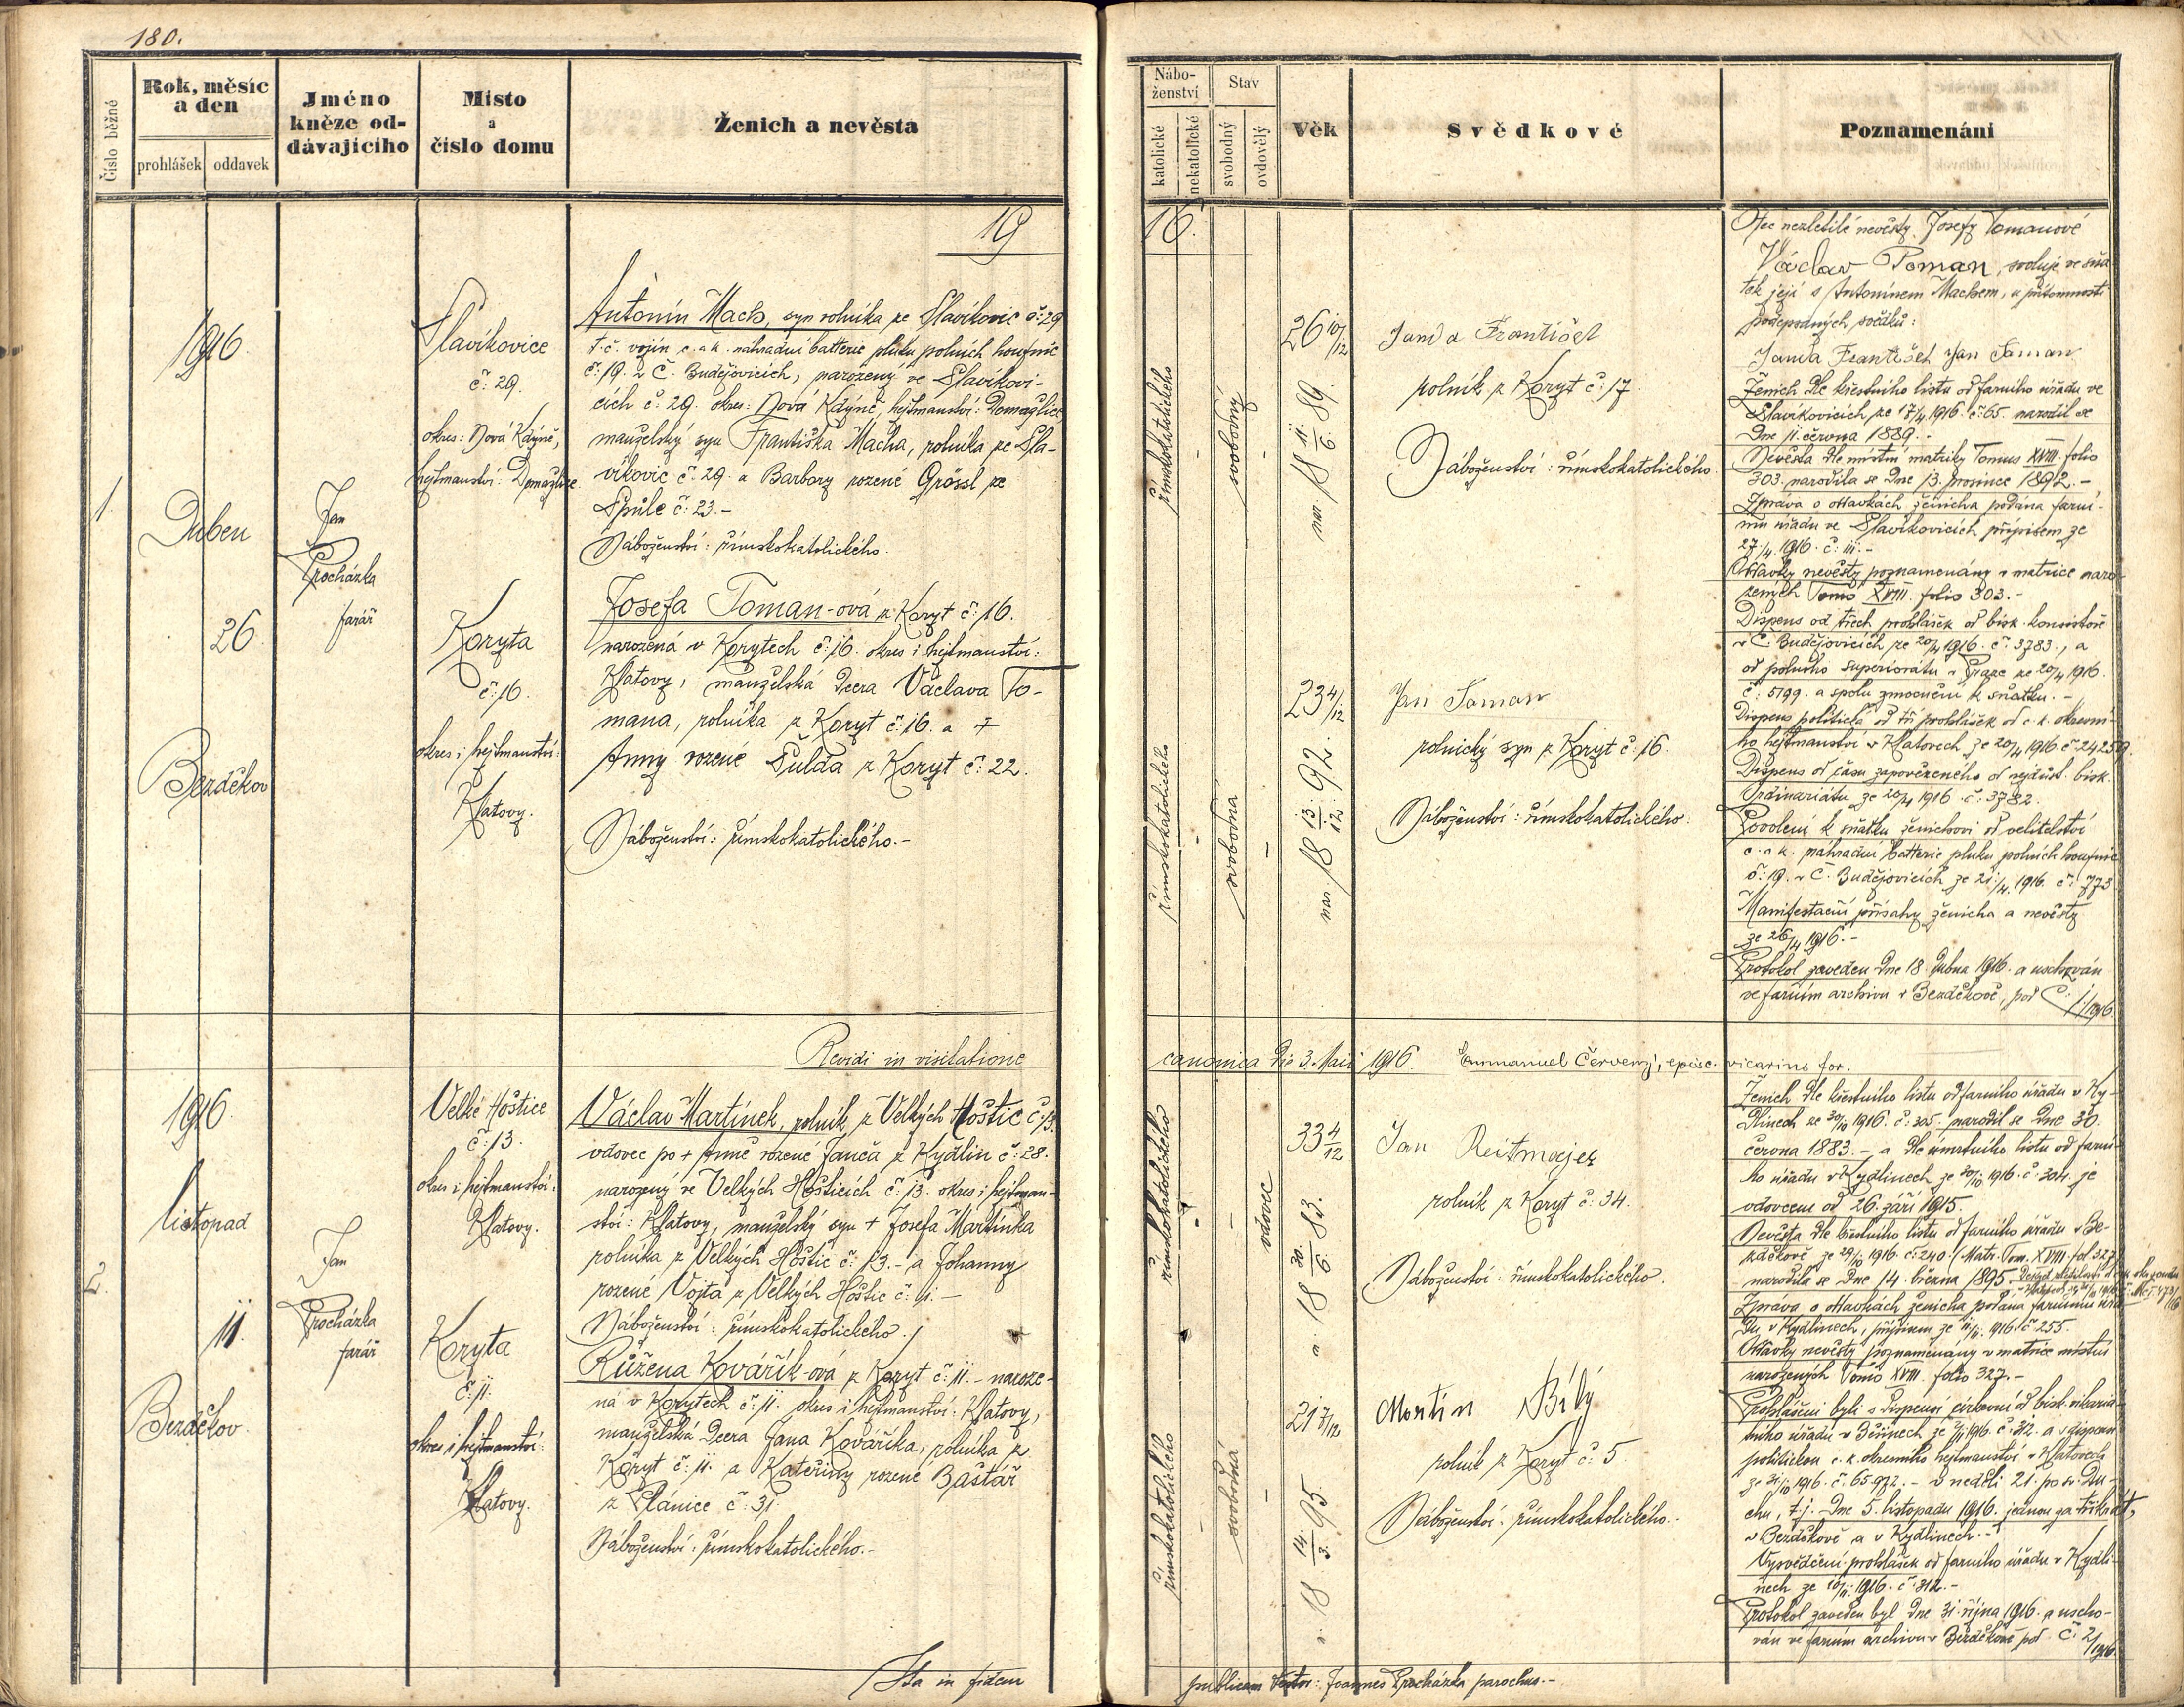 180.
Číslo běžné
Rok, měsíc
a den
prohlášek
oddavek
Jméno
kněze od-
dávajícího
Místo
a
číslo domu
Ženich a nevěsta
19
1916
Duben
26
Bezděkov
1.
Jan
Procházka
farář
Slavíkovice
č: 29.
okres: Nová Kdýně,
hejtmanství: Domažlice.
Antonín Mach, syn rolníka ze Slavíkovic č: 29
t. č. vojín c. a k. náhradní batterie pluku polních houfnic
č: 19. v Č. Budějovicích, narozený ve Slavíkovi-
cích č: 29. okres: Nová Kdýně, hejtmanství: Domažlice
manželský syn Františka Macha, rolníka ze Sla-
víkovic č: 29. a Barbory rozené Grössl ze
Spůle č: 23.-
Náboženství: římskokatolického.
Koryta
č: 16.
okres i hejtmanství:
Klatovy.
Josefa Toman-ová z Koryt č: 16.
narozená v Korytech č: 16. okres i hejtmanství:
Klatovy, manželská dcera Václava To-
mana, rolníka z Koryt č: 16. a +
Anny rozené Šulda z Koryt č: 22.
Náboženství: římskokatolického.-
Revidi in visitatione
1916
listopad
11.
Bezděkov
2.
Jan
Procházka
farář
Velké Hoštice
č: 13.
okres i hejtmanství:
Klatovy.
Václav Martínek, rolník z Velkých Hoštic č: 13.
vdovec po + Anně rozené Janča z Kydlin č: 28.
narozený ve Velkých Hošticích č: 13. okres i hejtman-
ství: Klatovy, manželský syn + Josefa Martínka
rolníka z Velkých Hoštic č: 13.- a Johanny
rozené Vojta z Velkých Hoštic č: 11.-
Náboženství: římskokatolického./
Koryta
č: 11.
okres i hejtmanství:
Klatovy.
Růžena Kovářík-ová z Koryt č: 11.- naroze-
ná v Korytech č: 11. okres i hejtmanství: Klatovy,
manželská dcera Jana Kováříka, rolníka z
Koryt č: 11. a Kateřiny rozené Baštář
z Plánice č: 31.
Náboženství: římskokatolického.-
Ita in fidem
Nábo-
ženství
katolické
nekatolické
Stav
svobodný
ovdovělý
Věk
Svědkové
Poznamenání
16.
římskokatolického
-
svobodný
-
26 10/12
nar. 18 11./6. 89.
Janda František
rolník z Koryt č: 17
Náboženství: římskokatolického.
římskokatolického
-
svobodná
-
23 4/12
nar. 18 13./12. 92.
Jan Toman
rolnický syn z Koryt č: 16.
Náboženství: římskokatolického.
Otec nezletilé nevěsty Josefy Tomanové
Václav Toman, svoluje ve sňa-
tek její s Antonínem Machem, v přítomnosti
podepsaných svědků:
Janda František Jan Toman
Ženich dle křestního listu od farního úřadu ve
Slavíkovicích ze 17/4. 1916. č: 65. narodil se
dne 11. června 1889.-
Nevěsta dle místní matriky Tomus XVIII. folio
303. narodila se dne 13. prosince 1892.-
Zpráva o oddavkách ženicha podána farní-
mu úřadu ve Slavíkovicích přípisem ze
27/4. 1916. č: 111.-
Oddavky nevěsty poznamenány v matrice naro-
zených Tomo XVIII. folio 303.-
Dispens od třech prohlášek od bisk. konsistoře
v Č. Budějovicích ze 20/4 1916. č: 3783., a
od polního superiorátu v Praze ze 20/4 1916.
č: 5199. a spolu zmocnění k sňatku.-
Dispens politická od tří prohlášek od c. k. okresní-
ho hejtmanství v Klatovech ze 20/4 1916. č: 24259.
Dispens od času zapovězeného od nejdůst. bisk.
Ordinariátu ze 20/4 1916. č: 3782.
Povolení k sňatku ženichovi od velitelství
c. a k. náhradní batterie pluku polních houfnic
č: 19. v Č. Budějovicích ze 21./4. 1916. č: 773
Manifestační přísahy ženicha a nevěsty
ze 26/4 1916.-
Protokol zaveden dne 18. dubna 1916. a uschován
ve farním archivu v Bezděkově, pod Č: 1/1916.
canonica die 3. Maii 1916. Emmanuel Červený, episc. vicarius for.
římskokatolického
-
-
vdovec
33 4/12
n. 18 30./6. 83.
Jan Reitmajer
rolník z Koryt č: 34.
Náboženství: římskokatolického.
římskokatolického
-
svobodná
-
21 7/12
n. 18 14./3. 95.
Martin Bílý
rolník z Koryt č: 5.
Náboženství: římskokatolického.
Ženich dle křestního listu od farního úřadu v Ky-
dlinech ze 30/10 1916. č: 305. narodil se dne 30.
června 1883.- a dle úmrtního listu od farní-
ho úřadu v Kydlinech ze 30/10 1916. č: 304. je
vdovcem od 26. září 1915.
Nevěsta dle křestního listu od farního úřadu v Be-
zděkově ze 29/10 1916. č: 240. (Matr. Tom. XVIII. fol. 327)
narodila se dne 14. března 1895.
Zpráva o oddavkách ženicha podána farnímu úřa-
du v Kydlinech, přípisem ze 11/11. 1916. č: 255.
Oddavky nevěsty poznamenány v matrice místní
narozených Tomo XVIII. folio 327.-
Prohlášeni byli s dispensí církevní od bisk. vikariát-
ního úřadu v 1916. č: 312. a s dispensí
politickou c. k. okresního hejtmanství v Klatovech
ze 31/10 1916. č: 65.972.- v neděli 21. po sv. Du-
chu, t. j. dne 5. listopadu 1916. jednou za třikrát,
v Bezděkově a v Kydlinech.-
Vysvědčení prohlášek od farního úřadu v Kydli-
nech ze 10/11. 1916. č: 312.-
Protokol zaveden byl dne 31. října 1916. a uscho-
ván ve farním archivu v Bezděkově pod Č: 2/1916.
publicam testor: Joannes Procházka parochus.-